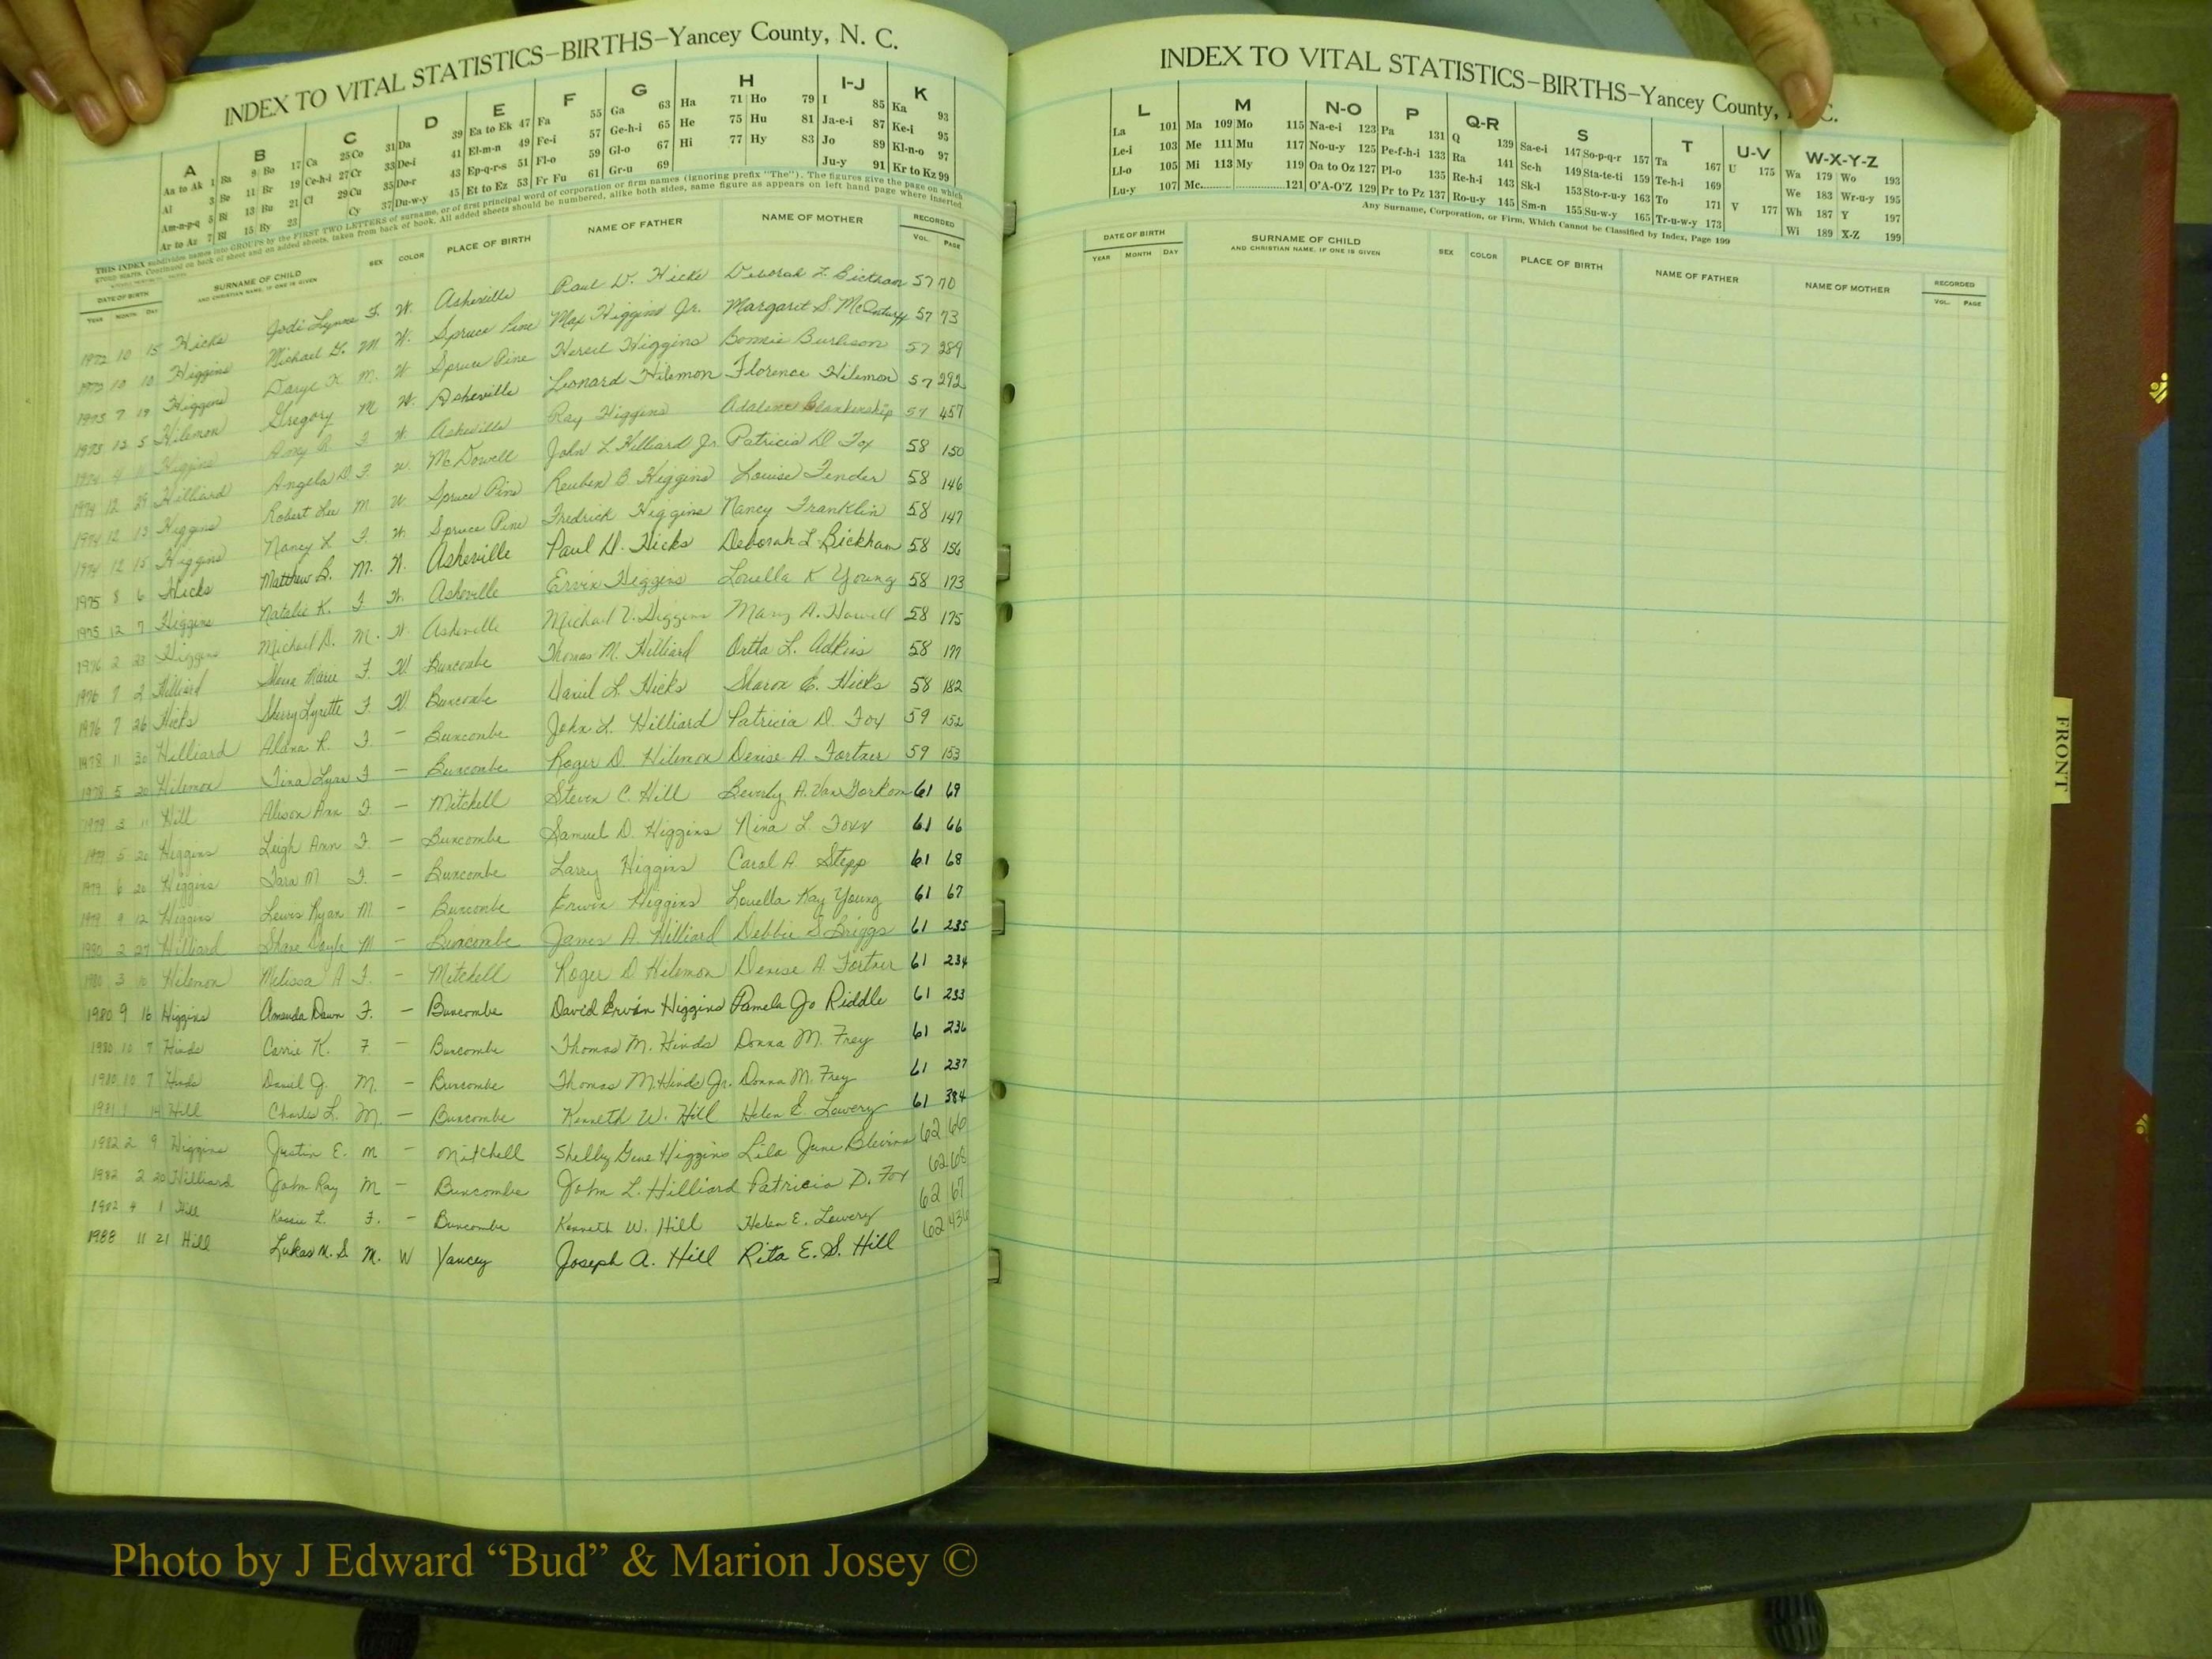 INDEX TO VITAL STATISTICS–BIRTHS–Yancey County, N. C.
A B C D E F G H I-J K
Aa to Ak 1 Ba 9 Bo 17 Ca 25 Co 31 Da 39 Ea to Ek 47 Fa 55 Ga 63 Ha 71 Ho 79 I 85 Ka 93
Al 3 Be 11 Br 19 Ce-h-i 27 Cr 33 De-i 41 El-m-n 49 Fe-i 57 Ge-h-i 65 He 75 Hu 81 Ja-e-i 87 Ke-i 95
Am-n-p-q 5 Bi 13 Bu 21 Cl 29 Cu 35 Do-r 43 Ep-q-r-s 51 Fl-o 59 Gl-o 67 Hi 77 Hy 83 Jo 89 Kl-n-o 97
Ar to Az 7 Bl 15 By 23 Cy 37 Du-w-y 45 Et to Ez 53 Fr Fu 61 Gr-u 69 Ju-y 91 Kr to Kz 99
THIS INDEX subdivides names into GROUPS by the FIRST TWO LETTERS of surname, or of first principal word of corporation or firm names (ignoring prefix "The"). The figures give the page on which
group starts. Continued on back of sheet and on added sheets, taken from back of book. All added sheets should be numbered, alike both sides, same figure as appears on left hand page where inserted
DATE OF BIRTH SURNAME OF CHILD SEX COLOR PLACE OF BIRTH NAME OF FATHER NAME OF MOTHER RECORDED
YEAR MONTH DAY AND CHRISTIAN NAME, IF ONE IS GIVEN VOL. PAGE
1972 10 15 Hicks Jodi Lynne F. W. Asheville Paul D. Hicks Deborah L. Bickham 57 70
10 10 Higgins Michael M W. Spruce Pine Max Higgins Jr. Margaret S. 57 73
1973 7 19 Higgins Daryl K M. W Spruce Pine Higgins Bonnie Burleson 57 289
1973 12 5 Hilemon Gregory M W. Asheville Leonard Hilemon Florence Hilemon 57 292
1974 4 Higgins Amy R. F W. Asheville Ray Higgins Blankenship 57 457
1974 12 29 Hilliard Angela D F. W. McDowell John L Hilliard Jr. Patricia D Fox 58 150
1974 12 13 Higgins Robert Lee M W. Spruce Pine Reuben B. Higgins Louise Fender 58 146
1974 12 15 Higgins Nancy L F. W. Spruce Pine Fredrick Higgins Nancy Franklin 58 147
1975 8 6 Hicks Matthew B. M. W. Asheville Paul D. Hicks Deborah L. Bickham 58 156
1975 12 7 Higgins Natalie K. F. W. Asheville Ervin Higgins Louella K Young 58 173
1976 2 23 Higgins Michael D. M. W. Asheville Michael V. Higgins Mary A. Howell 58 175
1976 7 2 Hilliard Marie F. W. Buncombe Thomas M. Hilliard Ortha L. Adkins 58 177
1976 7 26 Hicks Sherry Lynette F. W. Buncombe Daniel L. Hicks Sharon E. Hicks 58 182
1978 11 30 Hilliard Alana R. F. – Buncombe John L. Hilliard Patricia D. Fox 59 152
1978 5 20 Hilemon Tina Lynn F – Buncombe Roger D. Hilemon Denise A. Fortner 59 153
1979 3 11 Hill Alison Ann F. – Mitchell Steven C. Hill Beverly A. VanGorkom 61 69
1979 5 20 Higgins Leigh Ann F. – Buncombe Samuel D. Higgins Nina L. Foxx 61 66
1979 6 20 Higgins Tara M F. – Buncombe Larry Higgins Carol A Stepp 61 68
1979 9 12 Higgins Lewis Ryan M – Buncombe Erwin Higgins Louella Kay Young 61 67
1980 2 27 Hilliard Shane Doyle M – Buncombe James A. Hilliard Debbie S Briggs 61 235
1980 3 10 Hilemon Melissa A F. – Mitchell Roger D. Hilemon Denise A. Fortner 61 234
1980 9 16 Higgins Amanda Dawn F. – Buncombe David Ervin Higgins Pamela Jo Riddle 61 233
1980 10 7 Hinds Carrie K. F – Buncombe Thomas M. Hinds Donna M. Frey 61 236
1980 10 7 Hinds Daniel J. M. – Buncombe Thomas M. Hinds Jr. Donna M. Frey 61 237
1981 1 14 Hill Charles L. M. – Buncombe Kenneth W. Hill Helen E. Lowery 61 384
1982 2 9 Higgins Justin E. M – Mitchell Shelby Gene Higgins Lila June Blevins 62 66
1982 2 20 Hilliard John Ray M – Buncombe John L. Hilliard Patricia D. Fox 62 68
1982 4 1 Hill Kassie L. F. – Buncombe Kenneth W. Hill Helen E. Lowery 62 67
1988 11 21 Hill Lukas M. S M. W Yancey Joseph A. Hill Rita E. S. Hill 62 436
INDEX TO VITAL STATISTICS–BIRTHS–Yancey County, C.
L M N-O P Q-R S T U-V W-X-Y-Z
La 101 Ma 109 Mo 115 Na-e-i 123 Pa 131 Q 139 Sa-e-i 147 So-p-q-r 157 Ta 167 U 175 Wa 179 Wo 193
Le-i 103 Me 111 Mu 117 No-u-y 125 Pe-f-h-i 133 Ra 141 Sc-h 149 Sta-te-ti 159 Te-h-i 169 We 183 Wr-u-y 195
Ll-o 105 Mi 113 My 119 Oa to Oz 127 Pl-o 135 Re-h-i 143 Sk-l 153 Sto-r-u-y 163 To 171 V 177 Wh 187 Y 197
Lu-y 107 Mc 121 O'A-O'Z 129 Pr to Pz 137 Ro-u-y 145 Sm-n 155 Su-w-y 165 Tr-u-w-y 173 Wi 189 X-Z 199
Any Surname, Corporation, or Firm, Which Cannot be Classified by Index, Page 199
DATE OF BIRTH SURNAME OF CHILD SEX COLOR PLACE OF BIRTH NAME OF FATHER NAME OF MOTHER RECORDED
YEAR MONTH DAY AND CHRISTIAN NAME, IF ONE IS GIVEN VOL. PAGE
FRONT
Photo by J Edward “Bud” & Marion Josey ©